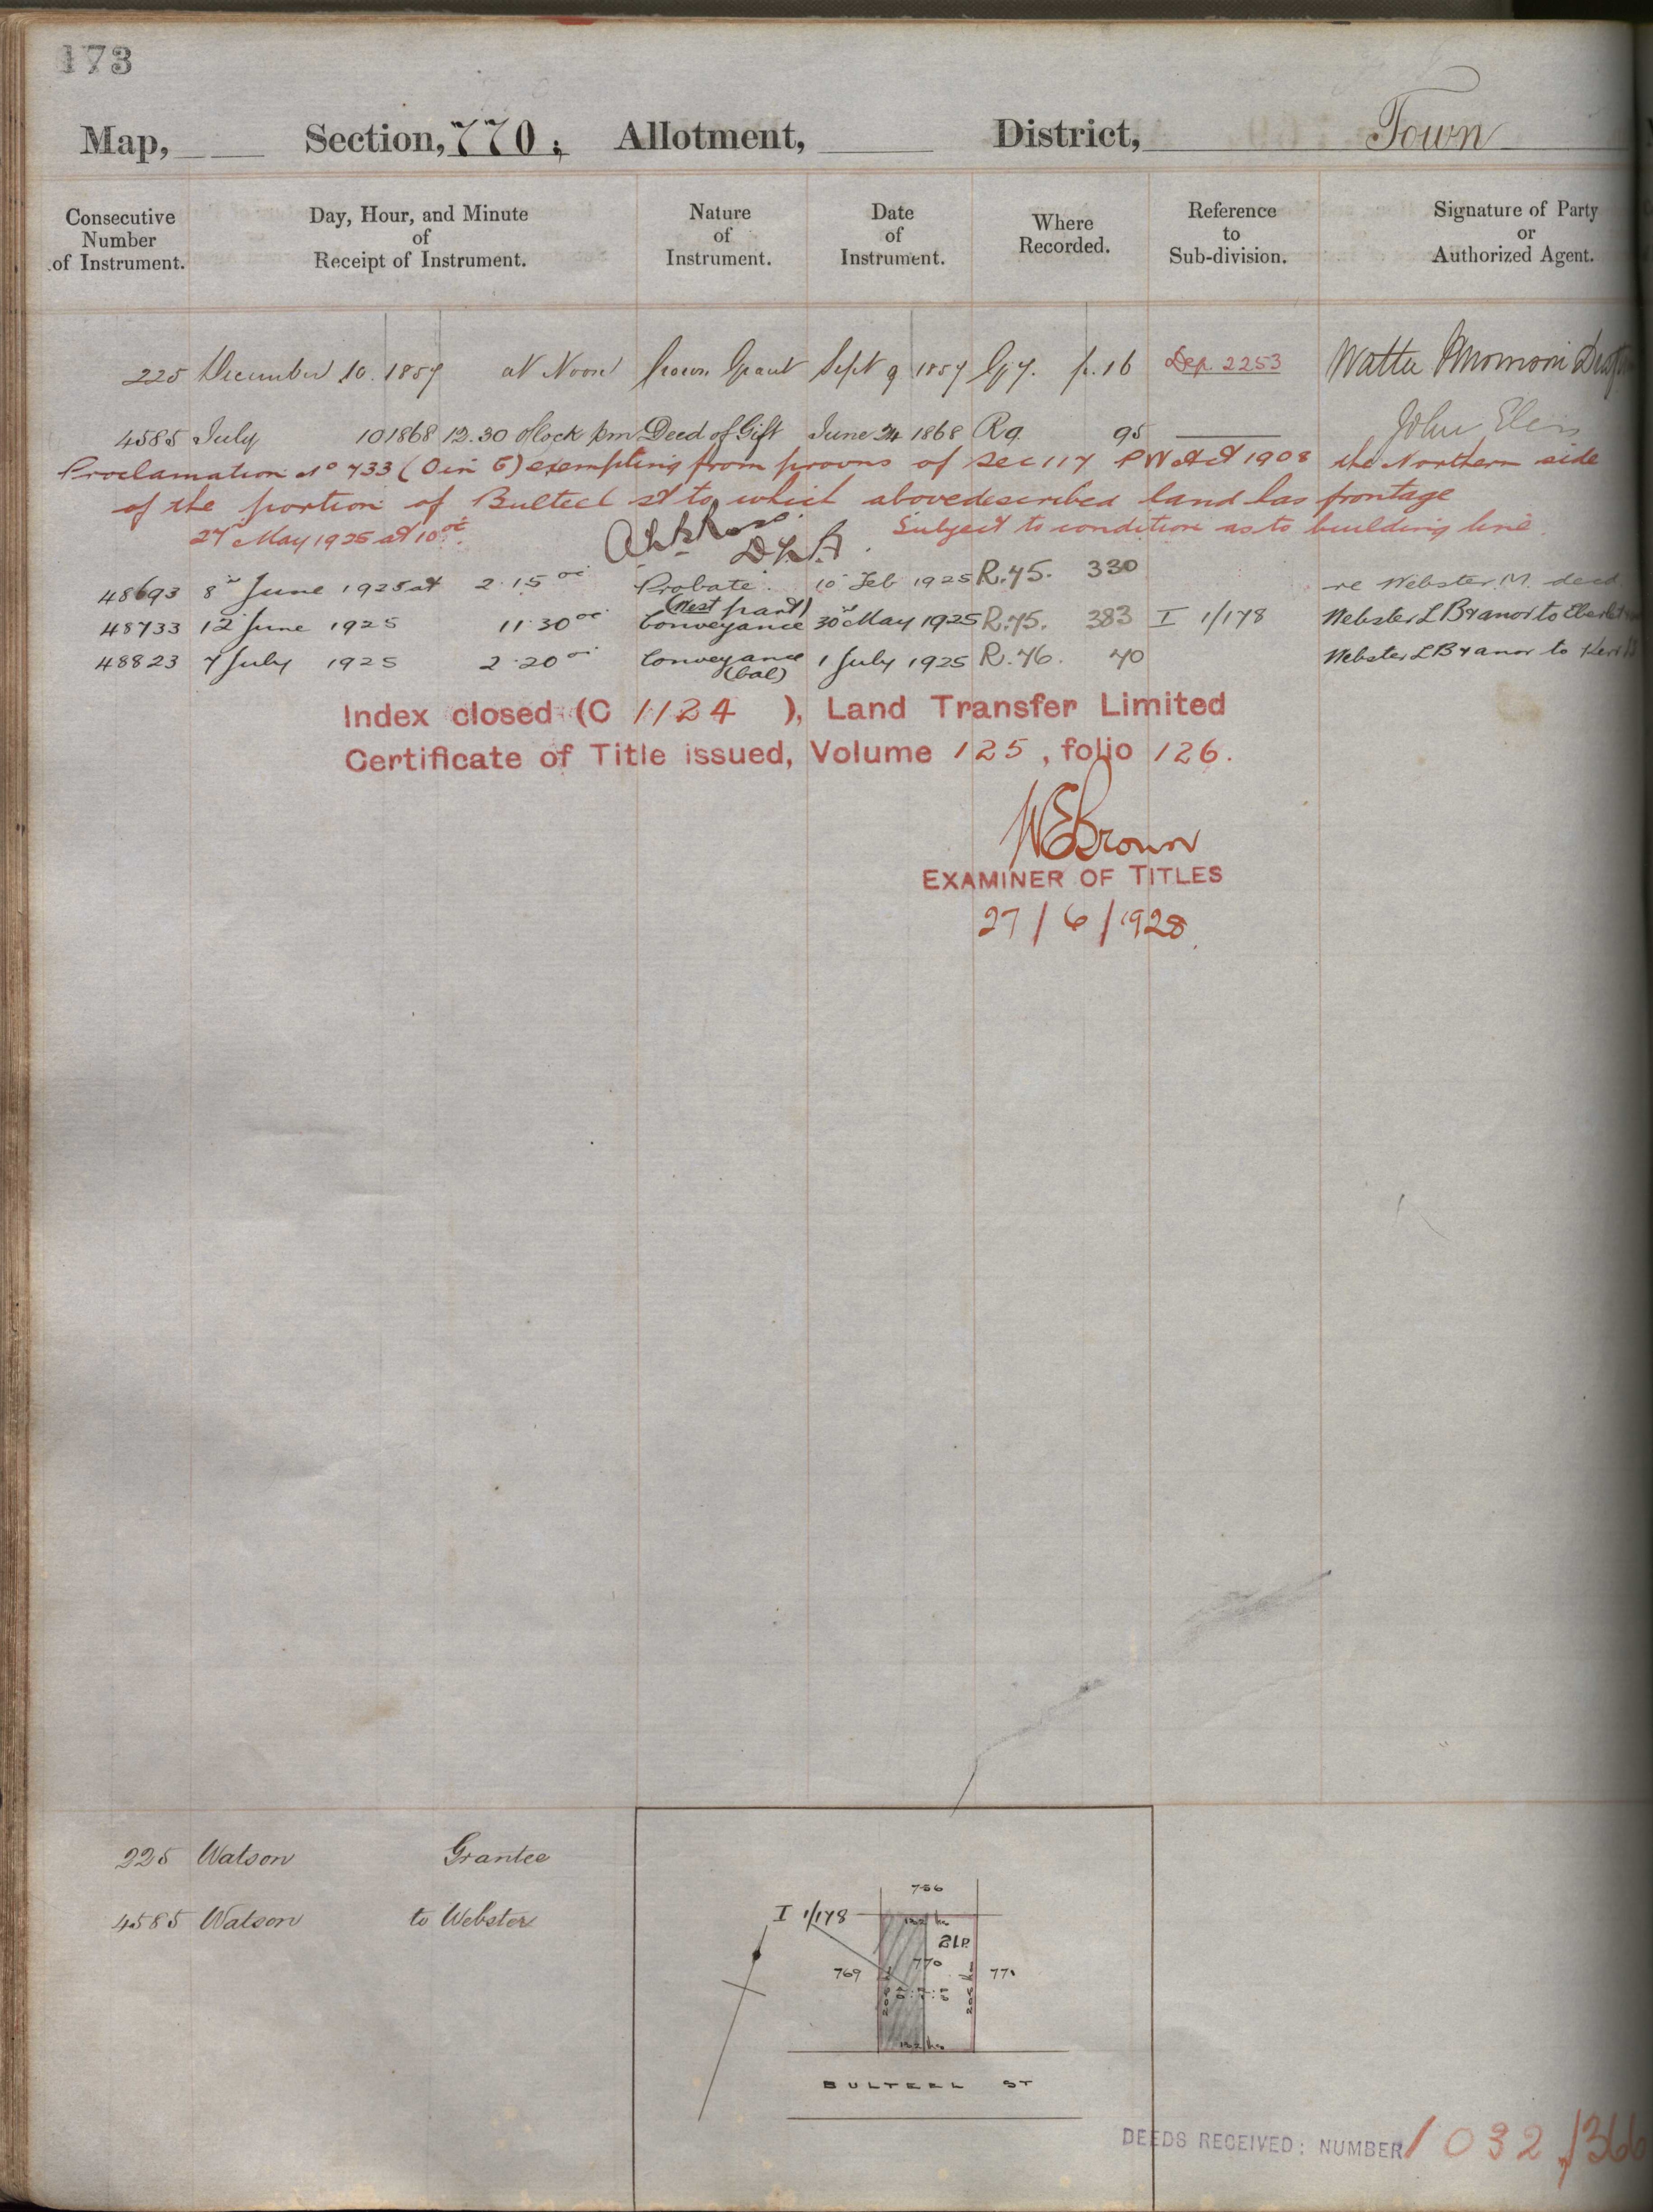 173
Map, Section, 770; Allotment, District, Town
Consecutive Number of Instrument. Day, Hour, and Minute of Receipt of Instrument. Nature of Instrument. Date of Instrument. Where Recorded. Reference to Sub-division. Signature of Party or Authorized Agent.
225 December 10. 1857 at Noon Crown Grant Sept 9 1857 G 7. p. 16 Dep. 2253
4585 July 10 1868 12.30 o'clock pm Deed of Gift June 24 1868 R9 95 John
Proclamation No 733 (O in C) exempting from provns of Sec 117 PW Act 1908 the Northern side
of the portion of Bulteel St to which abovedescribed land has frontage
27th May 1925 at 10 oc. Subject to condition as to building line.
D.L.R.
48693 8th June 1925 at 2.15 oc Probate 10 Feb 1925 R.75. 330 re Webster. M. decd
(West part)
48733 12th June 1925 11.30 oc Conveyance 30th May 1925 R.75. 383 I 1/178 Webster L B & anor to
48823 7 July 1925 2.20 oc Conveyance 1 July 1925 R.76. 70 Webster L B & anor to
(bal)
Index closed (C 1124 ), Land Transfer Limited
Certificate of Title issued, Volume 125, folio 126.
W E Brown
EXAMINER OF TITLES
27/6/1928.
225 Watson Grantee
4585 Watson to Webster
756
I 1/178
122 lks
21P.
770
769
771
122 lks
BULTEEL ST
DEEDS RECEIVED: NUMBER 1032,/366